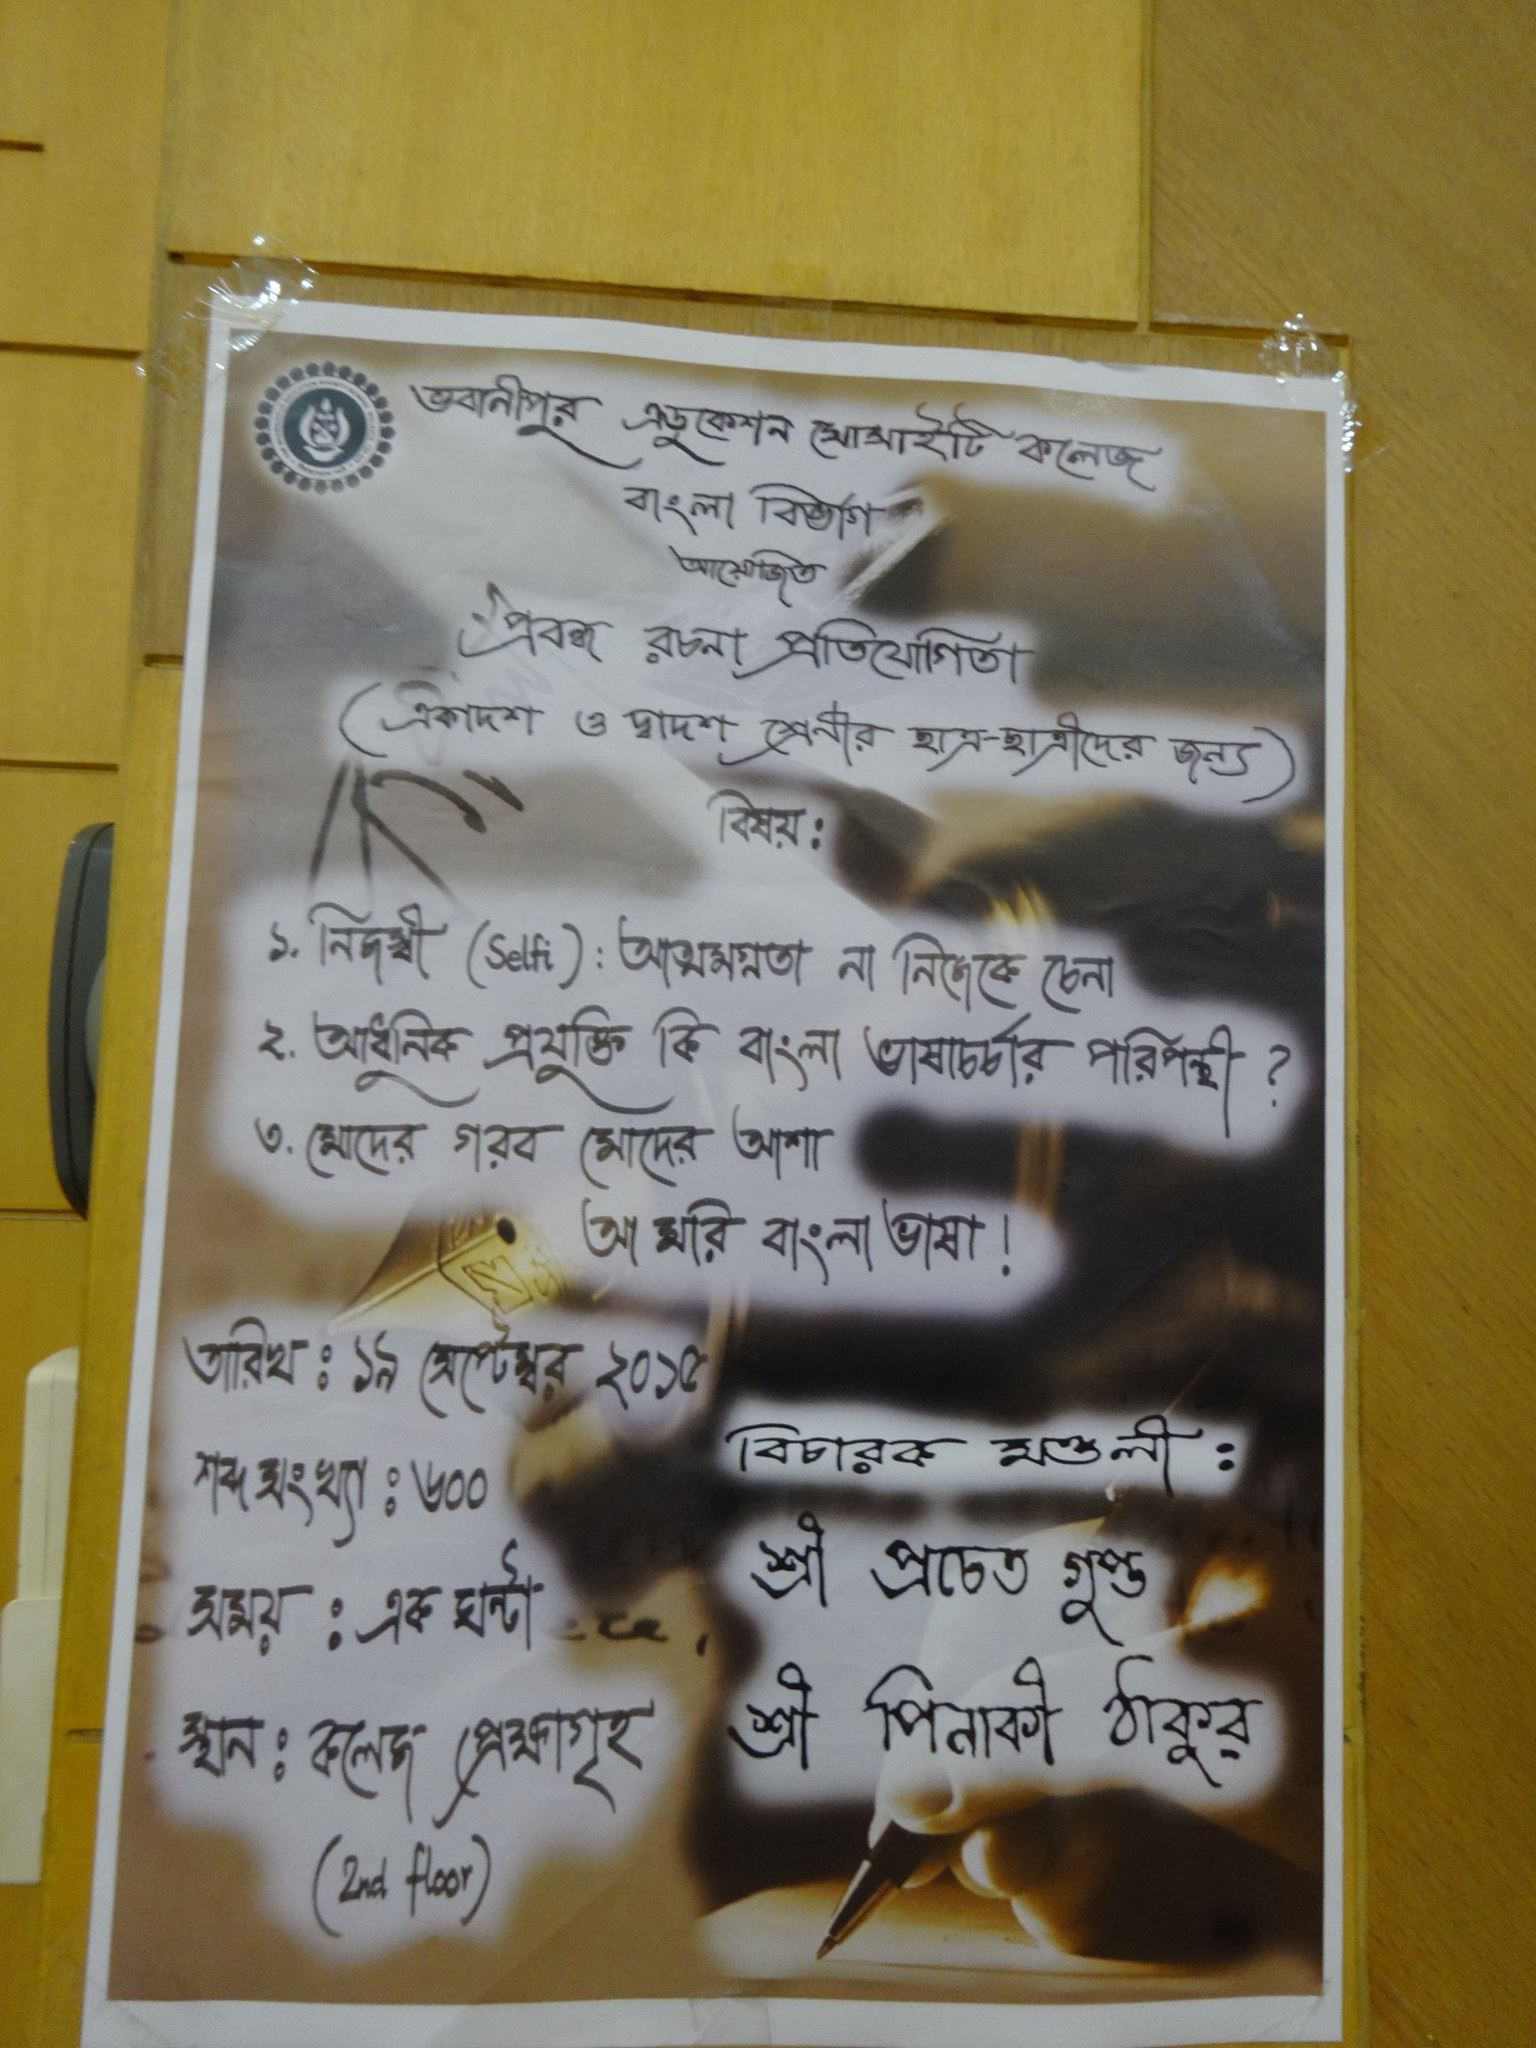 ভবানীপুর এডুকেশন সোসাইটি কলেজ
বাংলা বিভাগ
আয়োজিত
প্রবন্ধ রচনা প্রতিযোগিতা
(একাদশ ও দ্বাদশ শ্রেণীর ছাত্র-ছাত্রীদের জন্য)
বিষয়:
১. নিজস্বী (Selfi): আত্মমগ্নতা না নিজেকে চেনা
২. আধুনিক প্রযুক্তি কি বাংলা ভাষাচর্চার পরিপন্থী ?
৩. মোদের গরব মোদের আশা
আ মরি বাংলা ভাষা !
তারিখ : ১৯ সেপ্টেম্বর ২০১৫
শব্দ সংখ্যা : ৬০০
সময় : এক ঘন্টা
স্থান : কলেজ প্রেক্ষাগৃহ
(2nd floor)
বিচারক মণ্ডলী :
শ্রী প্রচেত গুপ্ত
শ্রী পিনাকী ঠাকুর